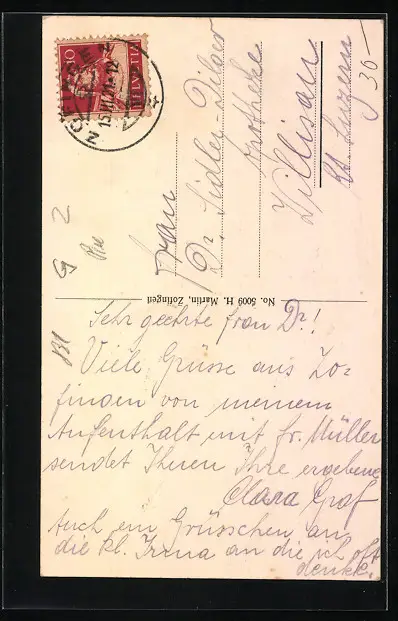 10
HELVETIA
15.III.21.-12
Frau
Dr. Sidler-Bilaer
Apotheke
Willisau
Kt. Luzern
36-
G 2
No. 5009 H. Martin, Zofingen
Sehr geehrte frau Dr.!
Viele Grüsse aus Zo-
fingen von meinem
Aufenthalt mit fr. Müller
sendet Ihnen Ihre ergebene
Clara Graf
Auch ein Grüsschen an
die kl. Irma an die ich oft
denke.